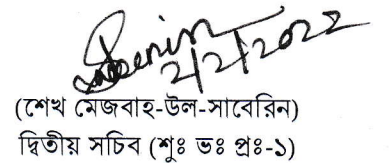 2/2/2022
(শেখ মেজবাহ-উল-সাবেরিন)
দ্বিতীয় সচিব (শুঃ ভঃ প্রঃ-১)